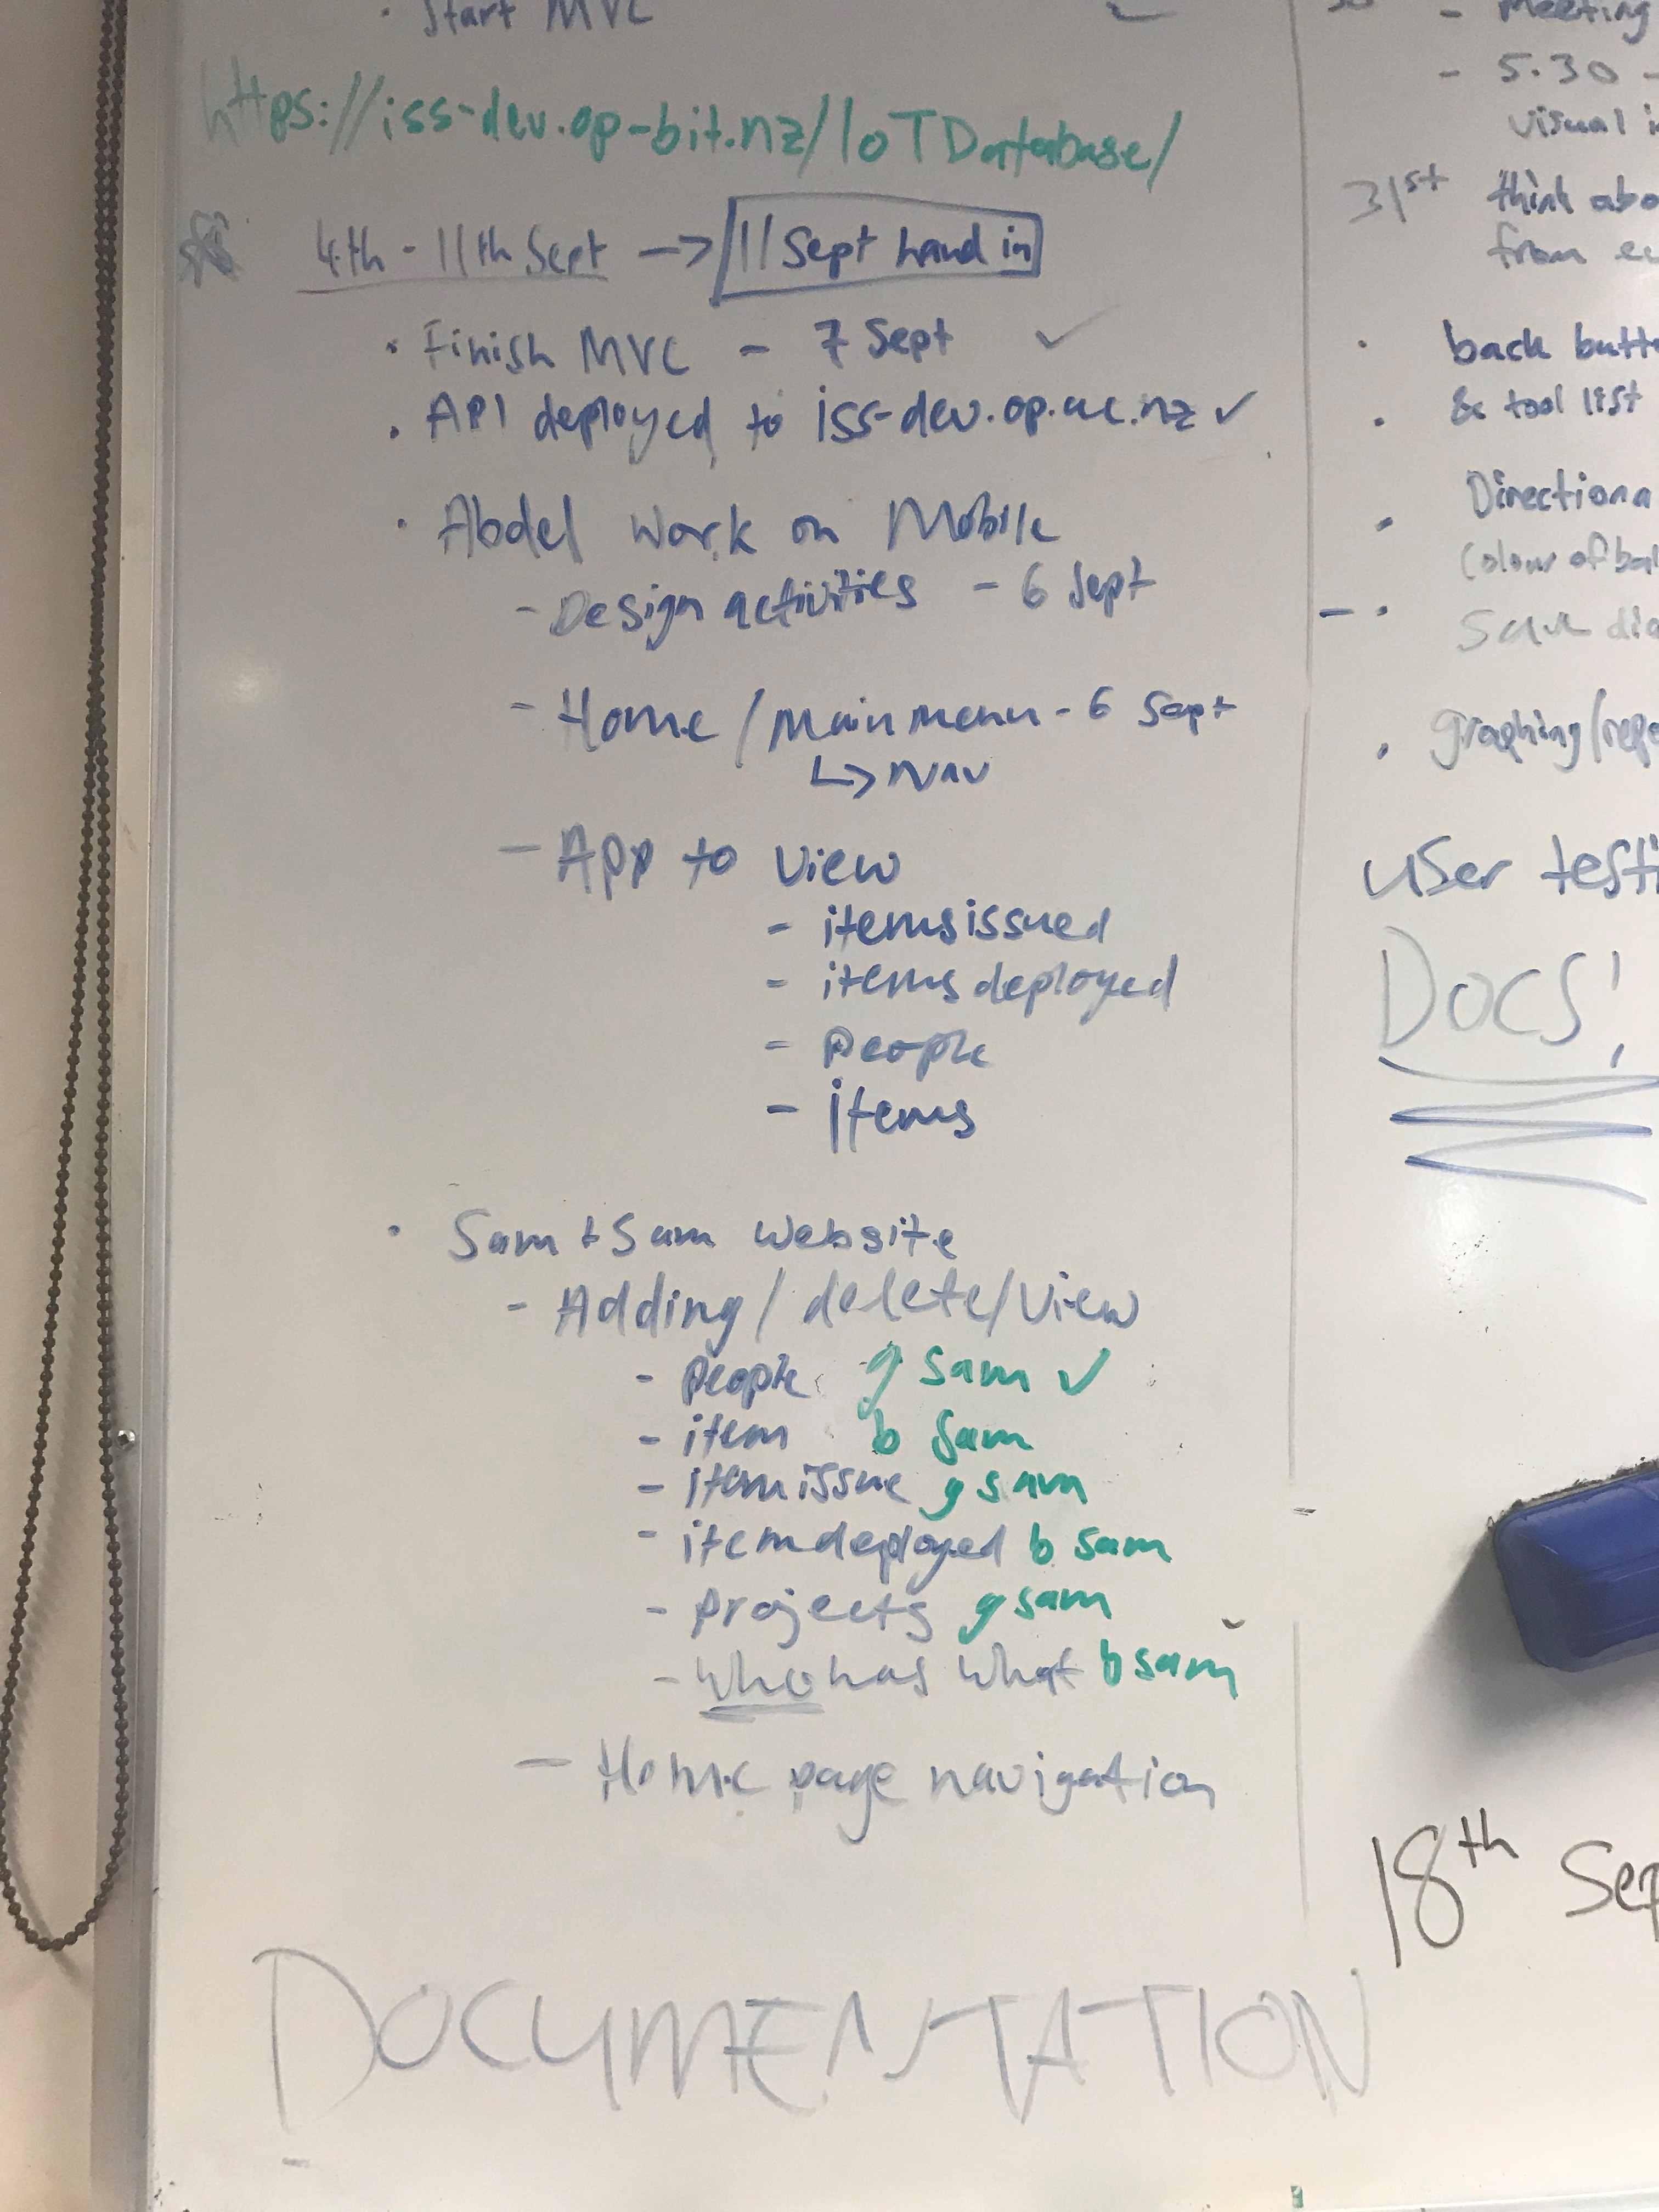 · Start MVC
https://iss-dev.op-bit.nz/IoTDatabase/
4th - 11th Sept → 11 Sept hand in
· Finish MVC - 7 Sept ✓
· API deployed to iss-dev.op.ac.nz ✓
· Abdel work on Mobile
- Design activities - 6 Sept
- Home / Main menu - 6 Sept
↳ Nav
- App to view
- items issued
- items deployed
- People
- items
· Sam + Sam Website
- Adding / delete / View
- People g sam ✓
- item b sam
- item issue g sam
- item deployed b sam
- projects g sam
- Who has what b sam
- Home page navigation
DOCUMENTATION
- Meeting
- 5.30 -
visual
31st think abo
from
· back butt
· & tool list
Directiona
Colour of ba
graphing/repo
User testi
DOCS!
18th Sep